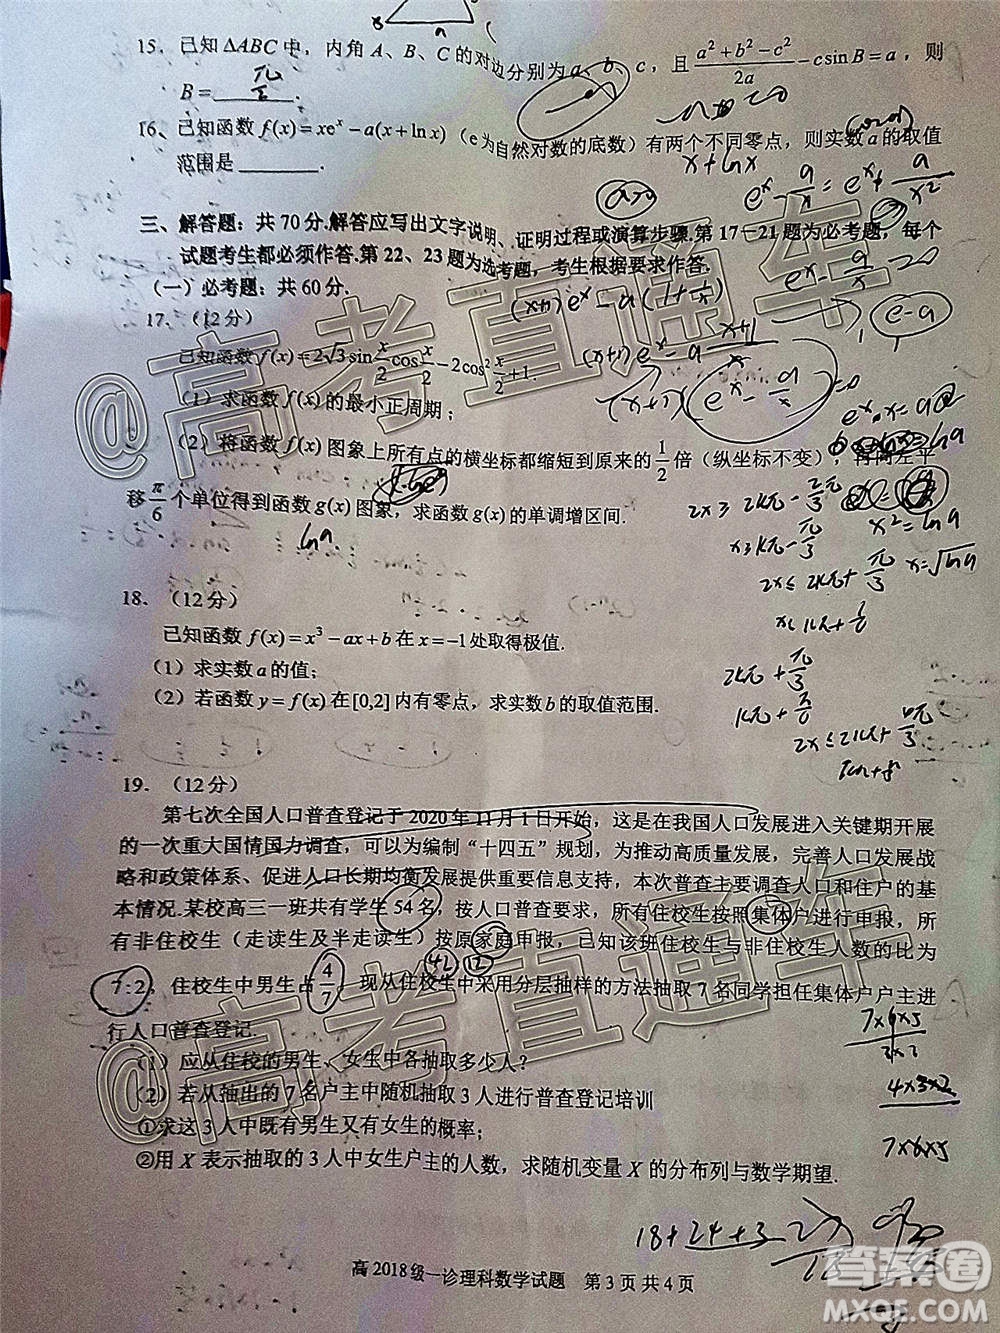 15. 已知 ΔABC 中，内角 A、B、C 的对边分别为 a、b、c，且 (a²+b²−c²)/2a − c sin B = a，则
B = π/2 .
16、已知函数 f(x) = xeˣ − a(x + ln x)（e 为自然对数的底数）有两个不同零点，则实数 a 的取值
范围是________.
三、解答题：共 70 分.解答应写出文字说明、证明过程或演算步骤.第 17－21 题为必考题，每个
试题考生都必须作答.第 22、23 题为选考题，考生根据要求作答.
（一）必考题：共 60 分.
17. （12分）
已知函数 f(x) = 2√3 sin x/2 cos x/2 − 2cos² x/2 + 1.
（1）求函数 f(x) 的最小正周期；
（2）将函数 f(x) 图象上所有点的横坐标都缩短到原来的 1/2 倍（纵坐标不变），再向左平
移 π/6 个单位得到函数 g(x) 图象，求函数 g(x) 的单调增区间.
18. （12分）
已知函数 f(x) = x³ − ax + b 在 x = −1 处取得极值.
（1）求实数 a 的值；
（2）若函数 y = f(x) 在 [0,2] 内有零点，求实数 b 的取值范围.
19. （12分）
第七次全国人口普查登记于 2020 年 11 月 1 日开始，这是在我国人口发展进入关键期开展
的一次重大国情国力调查，可以为编制“十四五”规划，为推动高质量发展，完善人口发展战
略和政策体系、促进人口长期均衡发展提供重要信息支持，本次普查主要调查人口和住户的基
本情况.某校高三一班共有学生 54 名，按人口普查要求，所有住校生按照集体户进行申报，所
有非住校生（走读生及半走读生）按原家庭申报，已知该班住校生与非住校生人数的比为
7:2，住校生中男生占 4/7，现从住校生中采用分层抽样的方法抽取 7 名同学担任集体户户主进
行人口普查登记.
（1）应从住校的男生、女生中各抽取多少人？
（2）若从抽出的 7 名户主中随机抽取 3 人进行普查登记培训
①求这 3 人中既有男生又有女生的概率；
②用 X 表示抽取的 3 人中女生户主的人数，求随机变量 X 的分布列与数学期望.
高 2018 级一诊理科数学试题 第 3 页 共 4 页
x + ln x
eˣ − a/x = eˣ + a/x²
(x+1)eˣ − a(1 + 1/x)
(x+1)eˣ − a (x+1)/x
e−a
ln a
x² = ln a
x = √ln a
2x ≥ 2kπ − 2π/3
x ≥ kπ − π/3
2x ≤ 2kπ + π/3
2kπ + π/3
42 12
7×6×5
3×2
4×3×2
7×6×5
18+24+3
@高考直通车
@高考直通车
答案圈
MXQE.COM